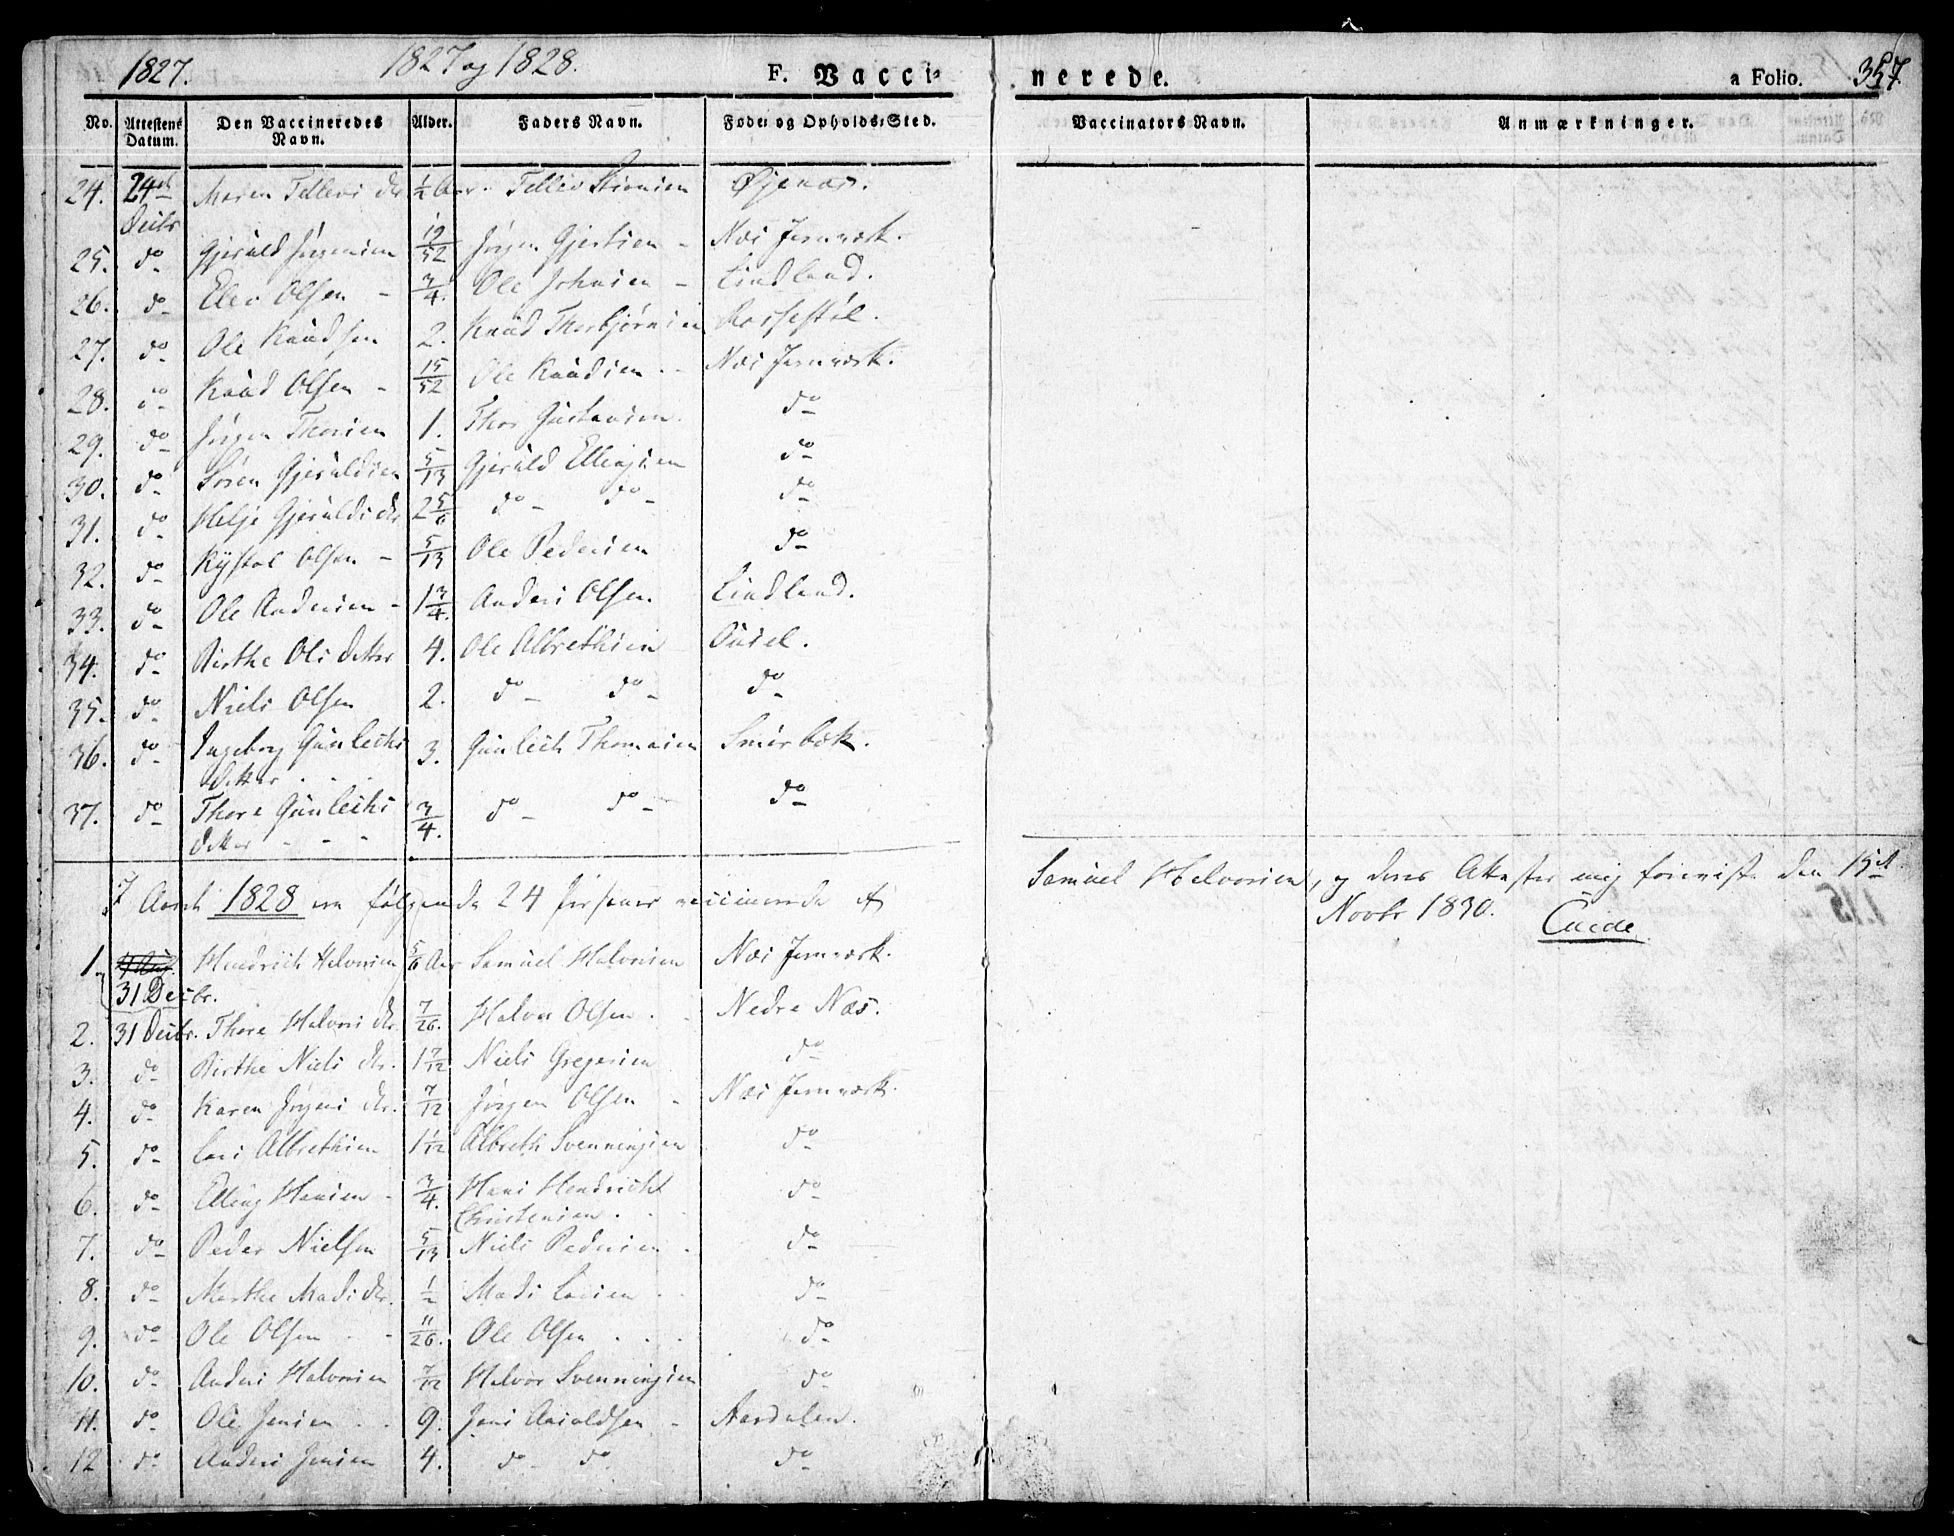 1827. 1827 og 1828. F. Vacci= nerede. a Folio. 357
No. Attestens Datum. Den Vaccineredes Navn. Alder. Faders Navn. Føde- og Opholds-Sted. Vaccinators Navn. Anmærkninger.
24. 24de Decbr Maren Tellevs dr 1/2 Aar. Tellev
25. do Gjeruld Jörgensen 19/52 Jörgen Gjertsen - Næs Jernværk.
26. do Elev Olsen - 3/4. Ole Johnsen - Lindland.
27. do Ole Knudsen 2. Knud Thorbjörnsen Rossestöl.
28. do Knud Olsen - 15/52 Ole Knudsen - - Næs Jernværk.
29. do Jörgen Thorsen 1. Thor Gustavsen. do
30. do Sören Gjeruldsen 5/13 Gjeruld Ellingsen do
31. do Helje Gjerulds dr 2 5/6 do - do - do
32. do Kystol Olsen - 5/13 Ole Pedersen do
33. do Ole Andersen - 1 3/4. Anders Olsen. Lindland.
34. do Birthe Ols datter 4. Ole Albrethsen
35. do Niels Olsen 2. do - do - do
36. do Ingeborg Gunleiks 3. Gunleik Thomasen Smörbæk.
datter - - -
37. do Thore Gunleiks 3/4. do do - do
datter - - -
I Aaret 1828 ere fölgende 24 Personer vaccinerede af Samuel Halvorsen, og deres Attester mig foreviste den 15de
Novbr 1830.
1. Hendrich Halvorsen 5/6 Aar Samuel Halvorsen Næs Jernværk.
31 Decbr.
2. 31 Decbr. Thore Halvors dr. 7/26. Halvor Olsen . . Nedre Næs.
3. do Birthe Niels dr. 1 7/12 Niels Gregersen do
4. do Karen Jörgens dr. 7/12 Jörgen Olsen - Næs Jernværk.
5. do Lars Albrethsen 1 1/12 Albreth Svenningsen do
6. do Elling Hansen - 3/4. Hans Hendrich do
Christensen . .
7. do Peder Nielsen 5/13 Niels Pedersen - do
8. do Marthe Mads dr. 1/2 Mads Larsen . . do
9. do Ole Olsen - - 11/26. Ole Olsen . . . do
10. do Anders Halvorsen 7/12 Halvor Svenningsen do
11. do Ole Jensen . . 9. Jens Aasoldsen - Aardalen.
12 do Anders Jensen 4. do - do do